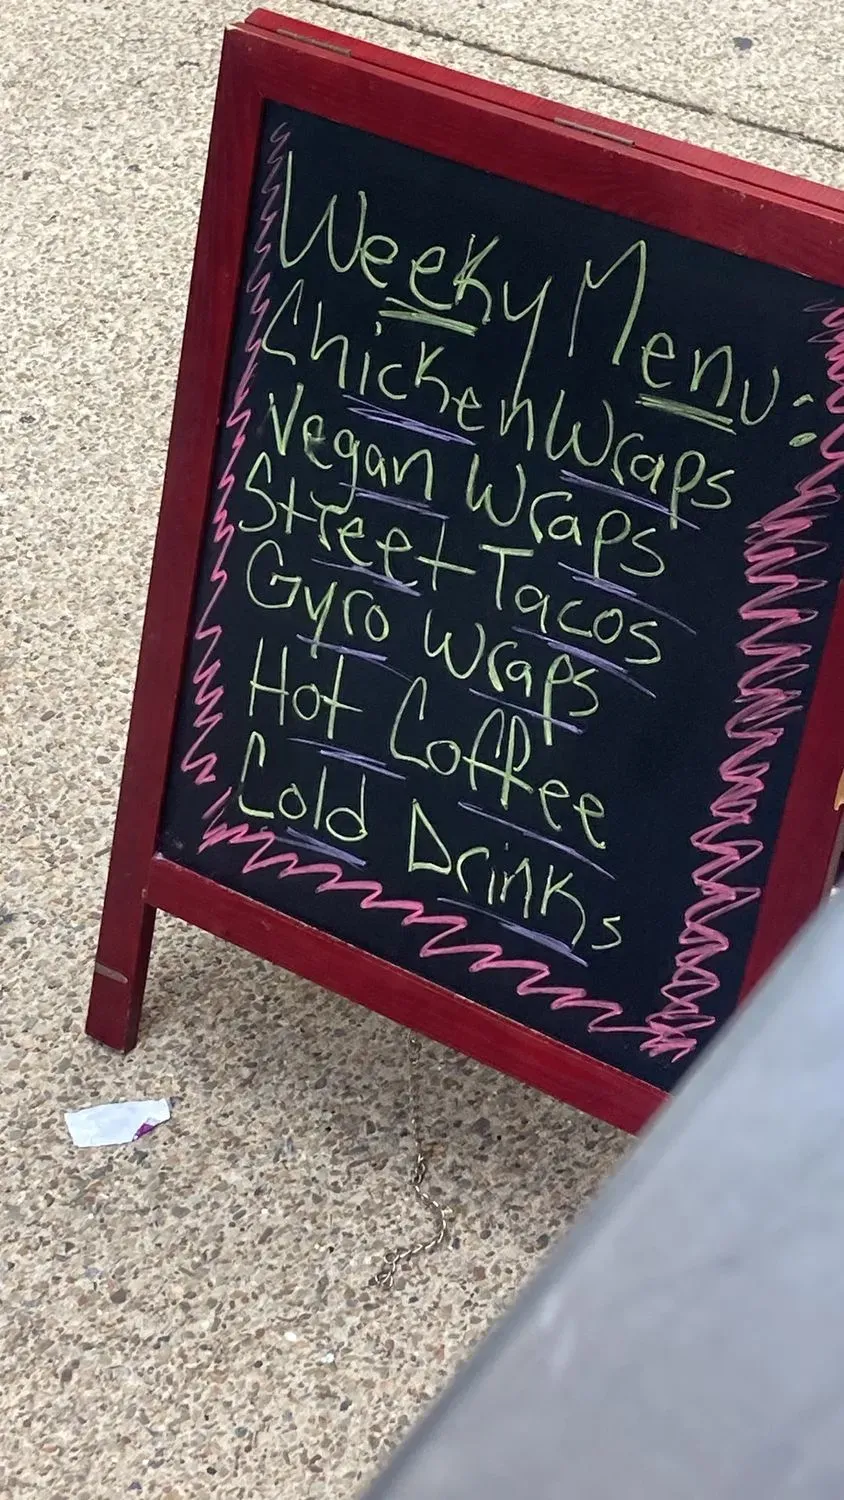 Weeky Menu:
Chicken Wraps
Vegan Wraps
Street Tacos
Gyro Wraps
Hot Coffee
Cold Drinks